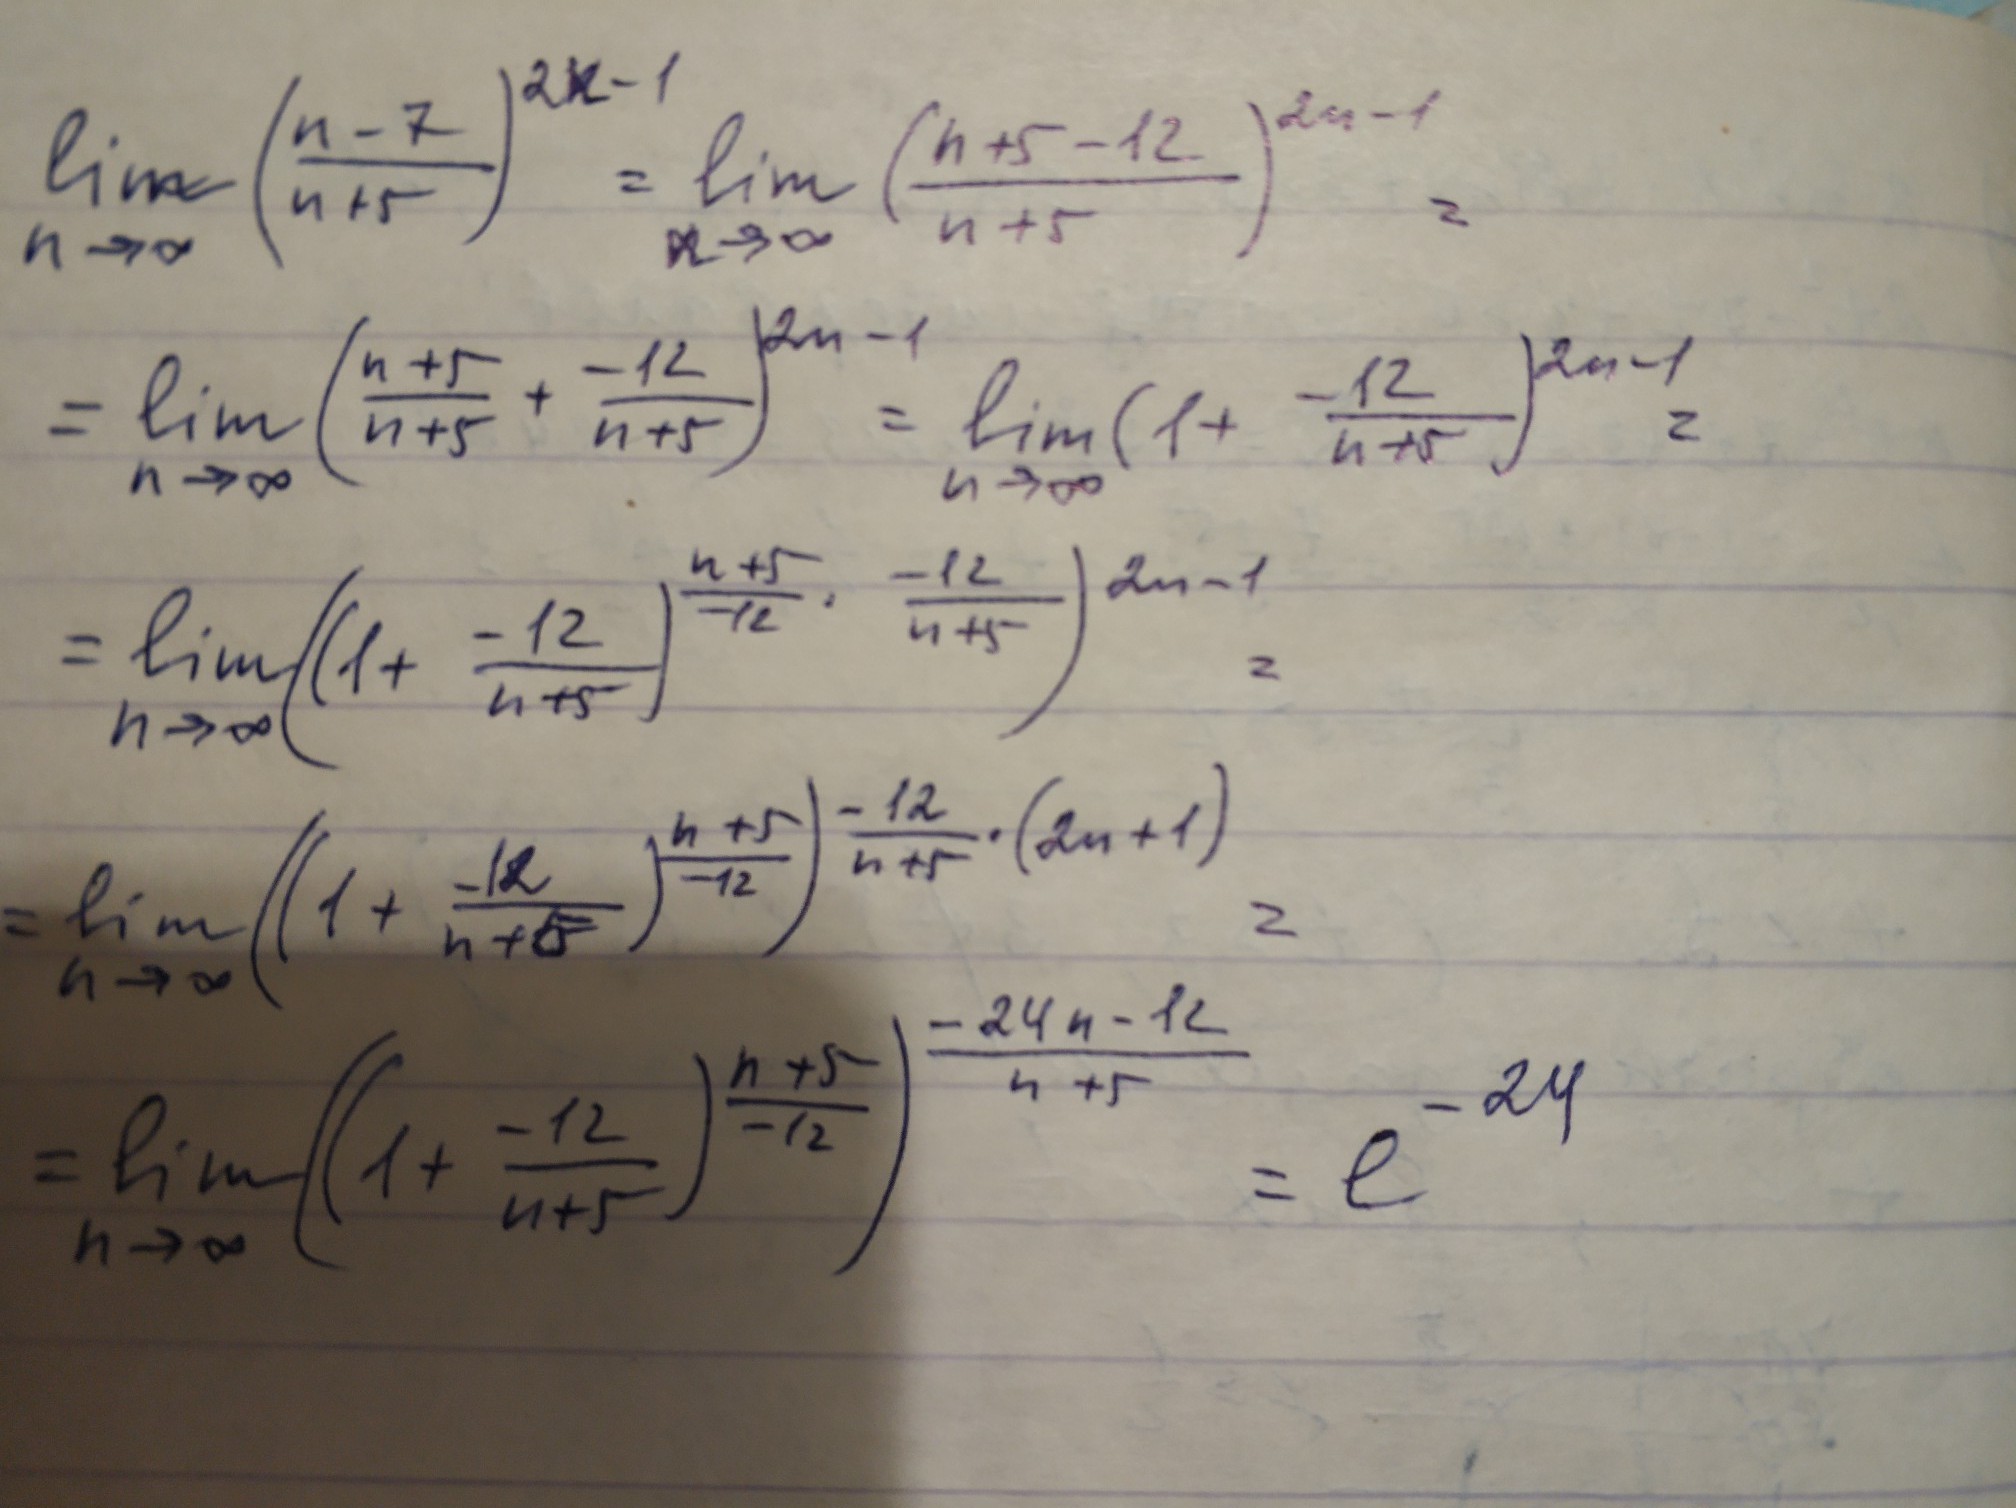 lim n→∞ ((n-7)/(n+5))^(2n-1) = lim n→∞ ((n+5-12)/(n+5))^(2n-1) =
= lim n→∞ ((n+5)/(n+5) + (-12)/(n+5))^(2n-1) = lim n→∞ (1+ (-12)/(n+5))^(2n-1) =
= lim n→∞ ((1+ (-12)/(n+5))^((n+5)/(-12) · (-12)/(n+5)))^(2n-1) =
= lim n→∞ ((1+ (-12)/(n+5))^((n+5)/(-12)))^((-12)/(n+5) · (2n+1)) =
= lim n→∞ ((1+ (-12)/(n+5))^((n+5)/(-12)))^((-24n-12)/(n+5)) = e^(-24)